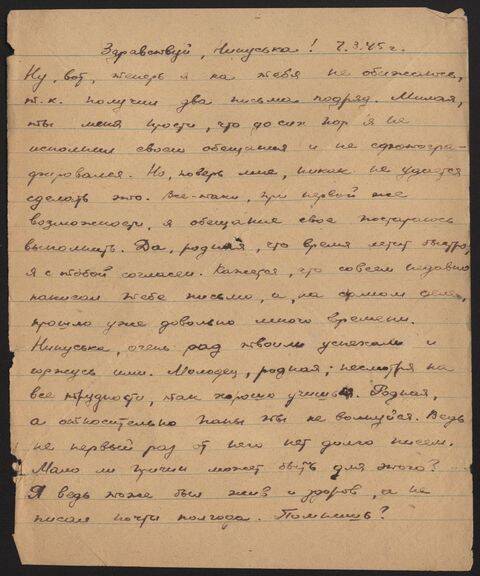 Здравствуй, Нинуська! 7.3.45 г.
Ну, вот, теперь я на тебя не обижаюсь,
т.к. получил два письма подряд. Милая,
ты меня прости, что до сих пор я не
исполнил своего обещания и не сфотогра-
фировался. Но, поверь мне, никак не удается
сделать это. Все-таки, при первой же
возможности, я обещание свое постараюсь
выполнить. Да, родная, что время летит быстро,
я с тобой согласен. Кажется, что совсем недавно
написал тебе письмо, а, на самом деле,
прошло уже довольно много времени.
Нинуська, очень рад твоим успехам и
горжусь ими. Молодец, родная; несмотря на
все трудности, так хорошо учишься. Родная,
а относительно папы ты не волнуйся. Ведь
не первый раз от него нет долго писем.
Мало ли причин может быть для этого?
Я ведь тоже был жив и здоров, а не
писал почти полгода. Помнишь?